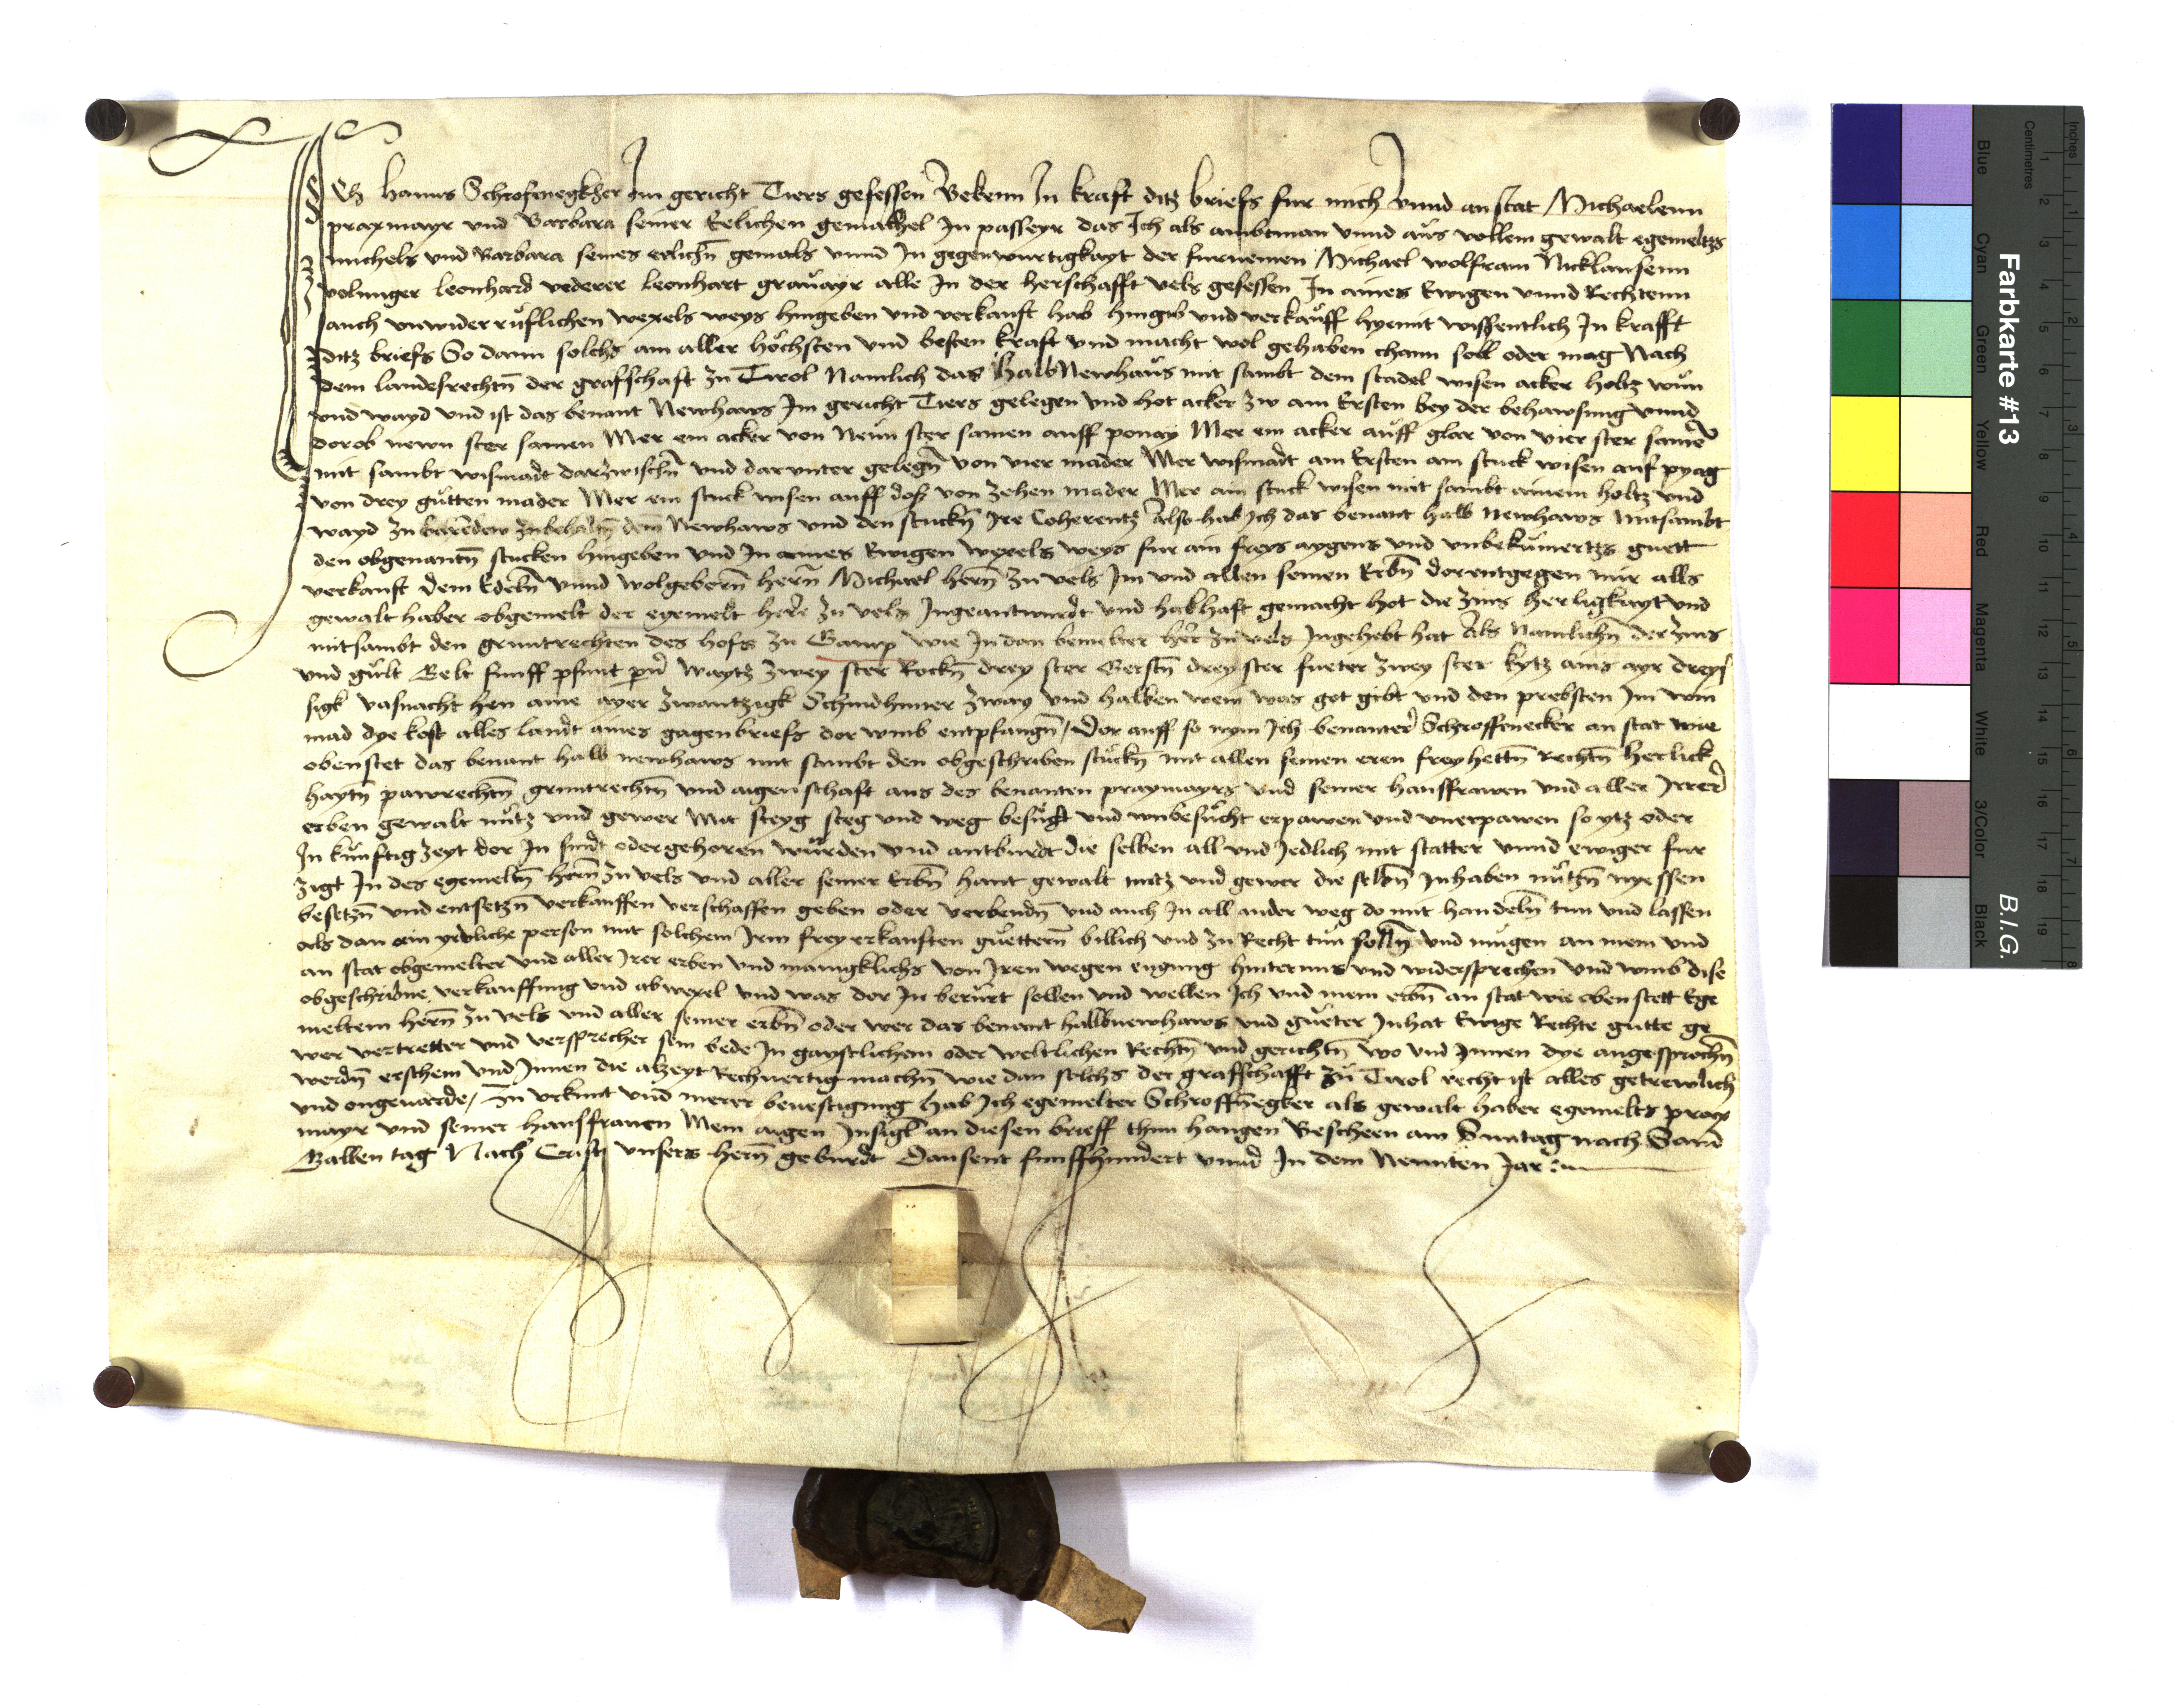 Ich hanns Schrofenegkher Im gericht Tiers gesessen Bekenn In kraft ditz briefs fur mich Vnnd an stat Michaelenn
praxmayr vnd Barbara seiner Eelichen gemahhel In passeyr das Ich als ambtman vnnd aůs vollem gewalt egemeltzs
michels vnd Barbara seines erlichn̄ gemals vnnd In gegenwurtigkayt der furnemen Michael wolfram Nicklausenn
volunger leonhard vederer leonhart graůayr alle In der herschafft vels gesessen In aines Ewigen vnnd Rechtenn
auch vnwider růflichen wexels weys hingeben vnd verkauft hab hingib vnd verkaůff hyemit wissentlich In krafft
ditz briefs So dann solchs am aller höchsten vnd besten kraft vnd macht wol gehaben chann soll oder mag Nach
dem landesrechtn̄ der grafschaft zu Tirol Namlich das halb Newhaůs mit sambt dem stadel wisen acker holtz wůn
vnd wayd vnd ist das benant Newhaws Im gericht Tiers gelegen vnd hot acker zw am Ersten bey der behawsung vnnd
dorob newn ster samen Mer ein acker von Neůn ster samen auff ponay Mer ein acker aůff glar von vier ster samē
mit sambt wismadt darzwischn̄ vnd darunter gelegn̄ von vier mader Mer wismadt am Ersten am stuck wisen auf pyag
von drey gůtten mader Mer ein stuck wisen auff doß von zehen mader Mer ain stuck wisen mit sambt ainem holtz vnd
wayd zu dem Newhaws vnd den stuckn̄ Ire Coherentz Also hab Ich das benant halb Newhaws mitsambt
den obgenantn̄ stucken hingeben vnd In aines Ewigen wexels weys fur ain freys aygens vnd vnbekůmertzs guett
verkauft dem Edeln̄ vnnd wolgebern̄ hern̄ Michael hern̄ zu vels Im vnd allen seinen Erbn̄ dorentgegen mir alls
gewalt haber obgemelt der egemelt herr zu vels Ingeantwurdt vnd habhaft gemacht hot die zins herligkayt vnd
mitsambt den gruntrechten des hofs zu Gamp wie In dan bemelter her̄ zu vels Ingehebt hat Als Namlichn̄ der zins
vnd gůlt Gelt funff pfunt per̄ Waytz zwey ster Rockn̄ drey ster Gerstn̄ drey ster fueter zwey ster kytz ains ayr dreys
sigk vasnacht hen aine ayer zwantzigk Schindhuner zway vnd halben wein was got gibt vnd den prebsten Im wim
mad dye kost alles laudt aines gagenbriefs dor vmb entpfangn̄ / Dor auff so nym Ich benanter Schroffenecker an stat wie
obenstet das benant halb newhaws mit sambt den obgeschriben stůckn̄ mit allen seinen eren freyhettn̄ Rechtn̄ herlick
haytn̄ pawrechtn̄ gruntrechtn̄ vnd aigenschaft aus des benanten praxmayrs vnd seiner hausfrawen vnd aller Irrer
erben gewalt nůtz vnd gewer Mit steyg steg vnd weg besůcht vnd vnbesůcht erpawen vnd vnerpawen so ytz oder
In kůnftig zeyt dor In sindt oder gehoren wůrden vnd antburdt die selben all vnd Jedlich mit statter vnnd ewiger fur
zigt In des egemeltn̄ hern̄ zu vels vnd aller seiner Erbn̄ hant gewalt nutz vnd gewer die selbn̄ Inhaben nůtzn̄ nyessen
besetzn̄ vnd entsetzn̄ verkauffen verschaffen geben oder verbendn̄ vnd auch In all ander weg do mit handeln̄ tun vnd lassen
als dan ain yedliche person mit solchem Irm frey erkauften guettern̄ billich vnd zu Recht tůn solln̄ vnd můgen an mein vnd
an stat obgemelter vnd aller Irer erben vnd manigklichs von Iren wegen engung hinternus vnd widersprechen vnd vmb dise
obgeschribne verkauffung vnd abwexel vnd was dor In berůrt sollen vnd wellen Ich vnd mein erbn̄ an stat wie oben stett Ege
meltem hern̄ zu vels vnd aller seiner erbn̄ oder wer das benant halbnewhaws vnd gůeter Inhat Ewige Rechte gutte ge
wer vertretter vnd versprecher sein bede In gaystlichem oder weltlichen Rechtn̄ vnd gerichtn̄ wo vnd Innen dye angesprochn̄
werdn̄ erschein vnd Innen die alzeyt Rechuertig machn̄ wie dan solchs der grafschafft zu Tirol recht ist alles getrewlich
vnd ongeuarde / Zu vrkunt vnd merer beuestigung hab Ich egemelter Schroffn̄egker als gewalt haber egemelts prax
mayr vnd seiner hausfrauen Mein aigen Insigl an diesen brieff thun hangen Beschehen am Suntag nach Sand
Gallen tag Nach Cristi vnsers hern̄ geburdt Dausent funffhundert vnnd In dem Neunten Jar
Farbkarte #13
B.I.G.
Inches
Centimetres
Blue
Cyan
Green
Yellow
Red
Magenta
White
3/Color
Black
1 2 3 4 5 6 7 8 9 10 11 12 13 14 15 16 17 18 19
1 2 3 4 5 6 7 8